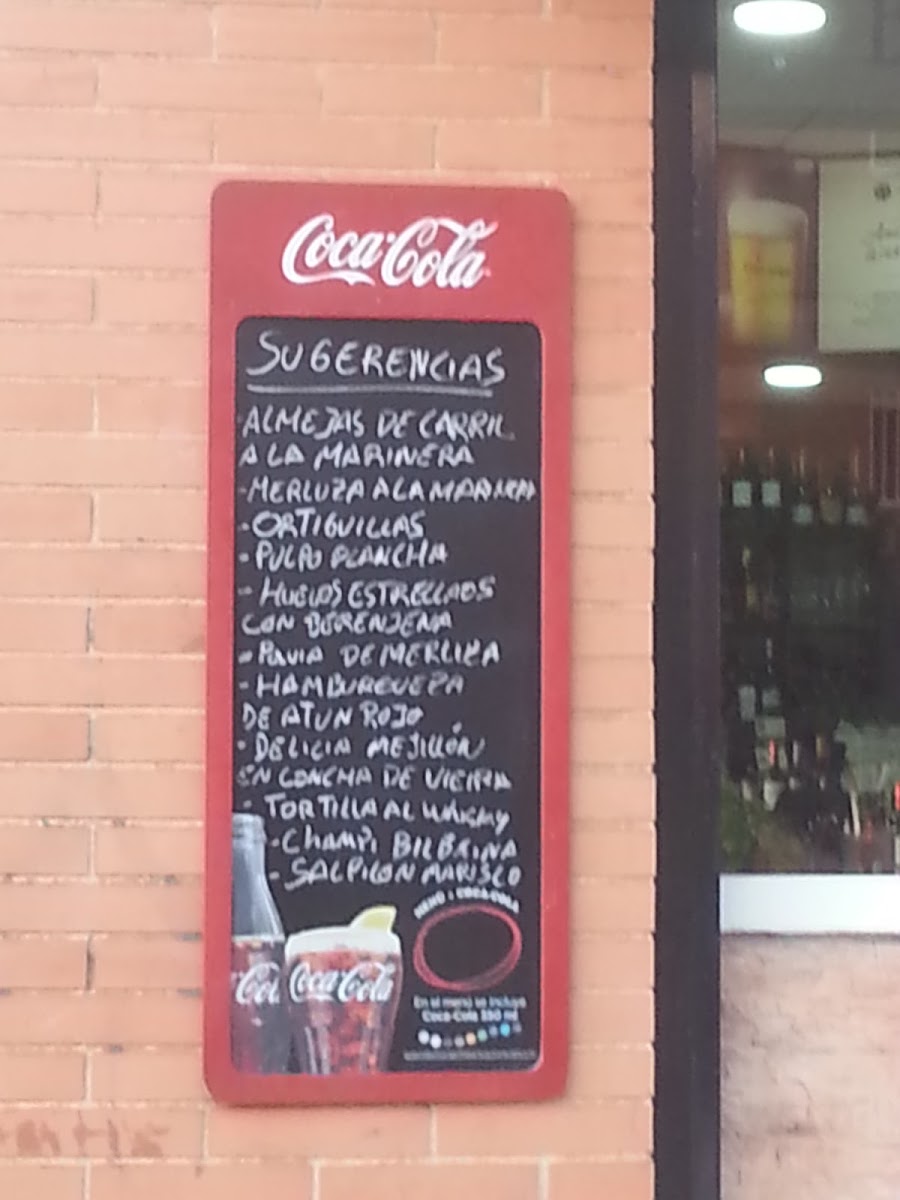 Coca-Cola
SUGERENCIAS
-ALMEJAS DE CARRIL
A LA MARINERA
-MERLUZA A LA MARINERA
-ORTIGUILLAS
-PULPO PLANCHA
-HUEVOS ESTRELLADOS
CON BERENJENA
-PAVIA DE MERLUZA
-HAMBURGUESA
DE ATUN ROJO
-DELICIA MEJILLÓN
EN CONCHA DE VIEIRA
-TORTILLA AL WHISKY
-CHAMPI BILBAINA
-SALPICON MARISCO
MENÚ + COCA-COLA
Coca-Cola
En el menú se incluye
Coca-Cola 350 ml